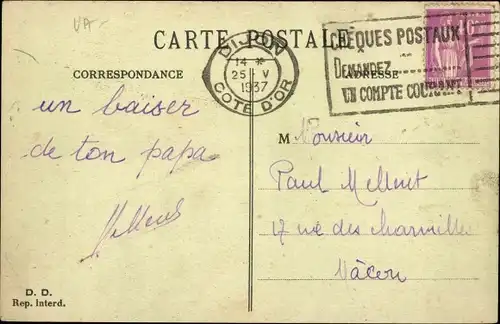 VA
CARTE POSTALE
DIJON
14 *
25 V
1937
COTE D'OR
CHÈQUES POSTAUX
DEMANDEZ
UN COMPTE COURANT
CORRESPONDANCE
ADRESSE
un baiser
de ton papa
M. Monsieur
Paul Mellnet
17 rue des charmilles
Mâcon
D. D.
Rep. Interd.